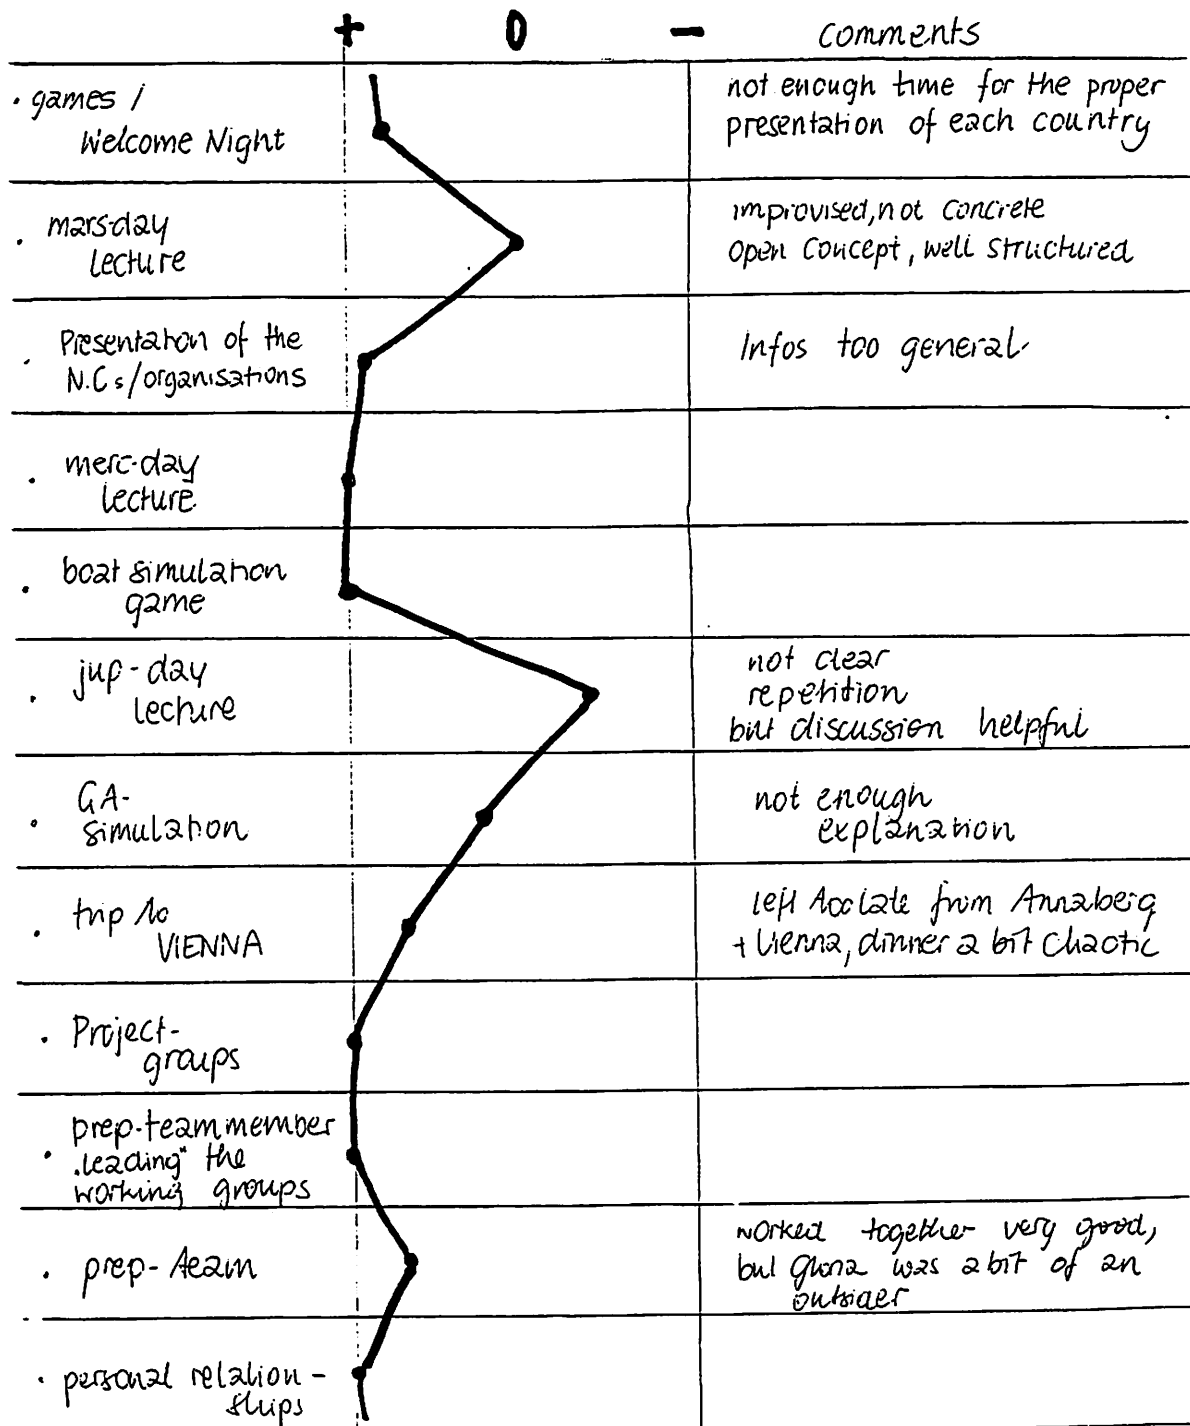 + 0 - comments
· games /
Welcome Night
not enough time for the proper
presentation of each country
· mars-day
lecture
improvised, not concrete
open concept, well structured
· Presentation of the
N.C.s/organisations
Infos too general
· merc-day
lecture
· boat simulation
game
· jup-day
lecture
not clear
repetition
but discussion helpful
· GA-
simulation
not enough
explanation
· trip to
VIENNA
left too late from Annaberg
+ Vienna, dinner a bit chaotic
· Project-
groups
· prep-team member
"leading" the
working groups
· prep-team
worked together very good,
but was a bit of an
outsider
· personal relation-
ships